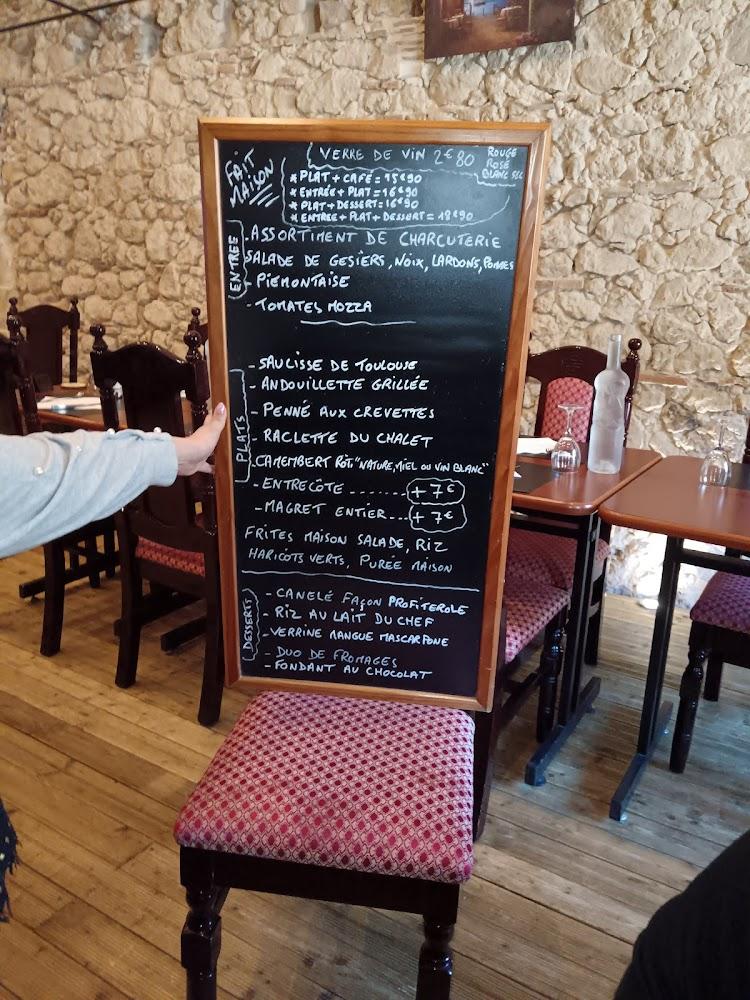 FAIT MAISON
VERRE DE VIN 2€80
ROUGE
ROSÉ
BLANC SEC
* PLAT + CAFÉ = 15€90
* ENTRÉE + PLAT = 16€90
* PLAT + DESSERT = 16€90
* ENTRÉE + PLAT + DESSERT = 18€90
ENTREE
- ASSORTIMENT DE CHARCUTERIE
SALADE DE GESIERS, NOIX, LARDONS, POMMES
- PIEMONTAISE
- TOMATES MOZZA
PLATS
- SAUCISSE DE TOULOUSE
- ANDOUILLETTE GRILLÉE
- PENNÉ AUX CREVETTES
- RACLETTE DU CHALET
- CAMEMBERT RÔTI "NATURE, MIEL OU VIN BLANC"
- ENTRECÔTE ........ +7€
- MAGRET ENTIER.... +7€
FRITES MAISON SALADE, RIZ
HARICOTS VERTS, PURÉE MAISON
DESSERTS
- CANELÉ FAÇON PROFITEROLE
- RIZ AU LAIT DU CHEF
- VERRINE MANGUE MASCARPONE
- DUO DE FROMAGES
- FONDANT AU CHOCOLAT